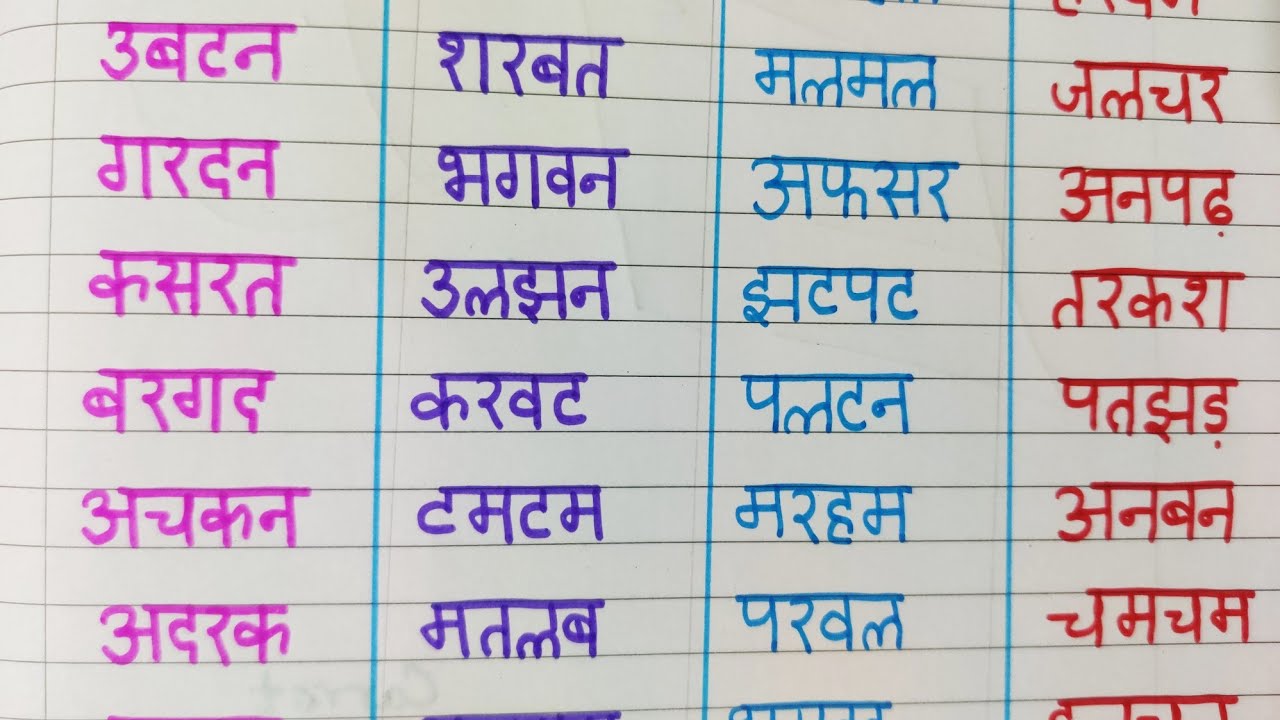 उबटन शरबत मलमल जलचर
गरदन भगवन अफसर अनपढ़
कसरत उलझन झटपट तरकश
बरगद करवट पलटन पतझड़
अचकन टमटम मरहम अनबन
अदरक मतलब परवल चमचम